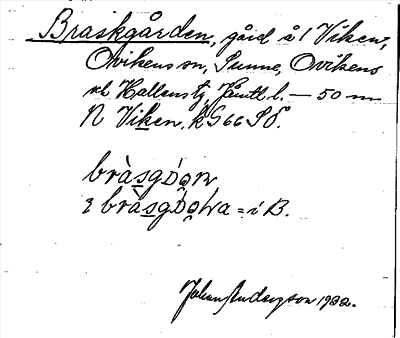 Braskgården, gård å 1 Viken,
Ovikens sn, Sunne, Ovikens
o. Hallens tg, Jämtl. l. — 50 m
N Viken, k G 66 S Ö.
bràsgɷ́ǫn
bràsgɷ̂ǫna = i B.
Johan Anderzson 1922.